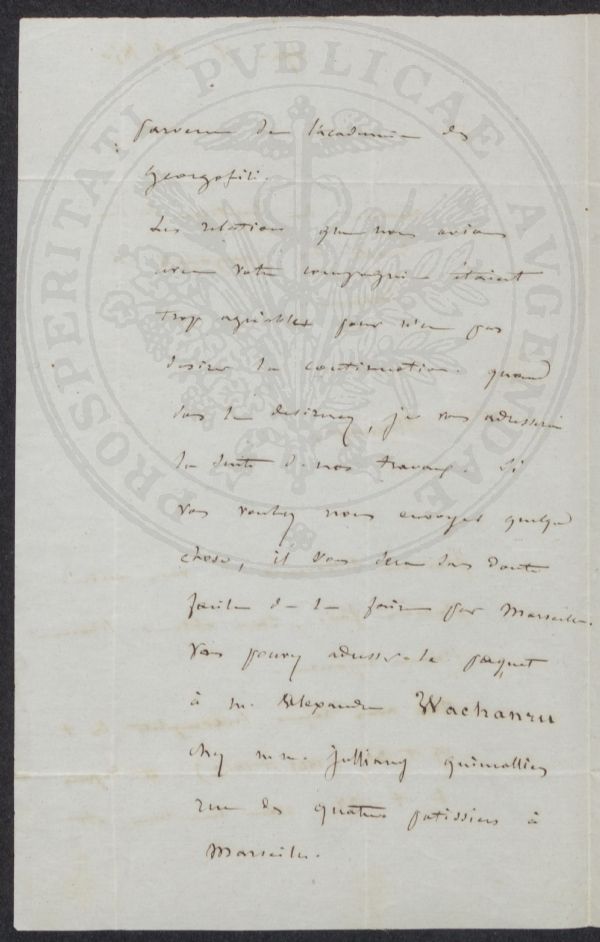 PROSPERITATI PVBLICAE AVGENDAE
parvenu de l'académie des
georgofili.
Les relations que nous avions
avec votre compagnie étaient
trop agréables pour n'en pas
desirer la continuation. quand
vous le desirerez, je vous adresserai
la suite de nos travaux. Si
vous voulez nous envoyer quelque
chose, il vous sera sans doute
facile de le faire par Marseille.
Vous pouvez adresser le paquet
à m. Alexandre Wachanru
chez m.m. Julliany
rue des quatre patissiers à
Marseille.